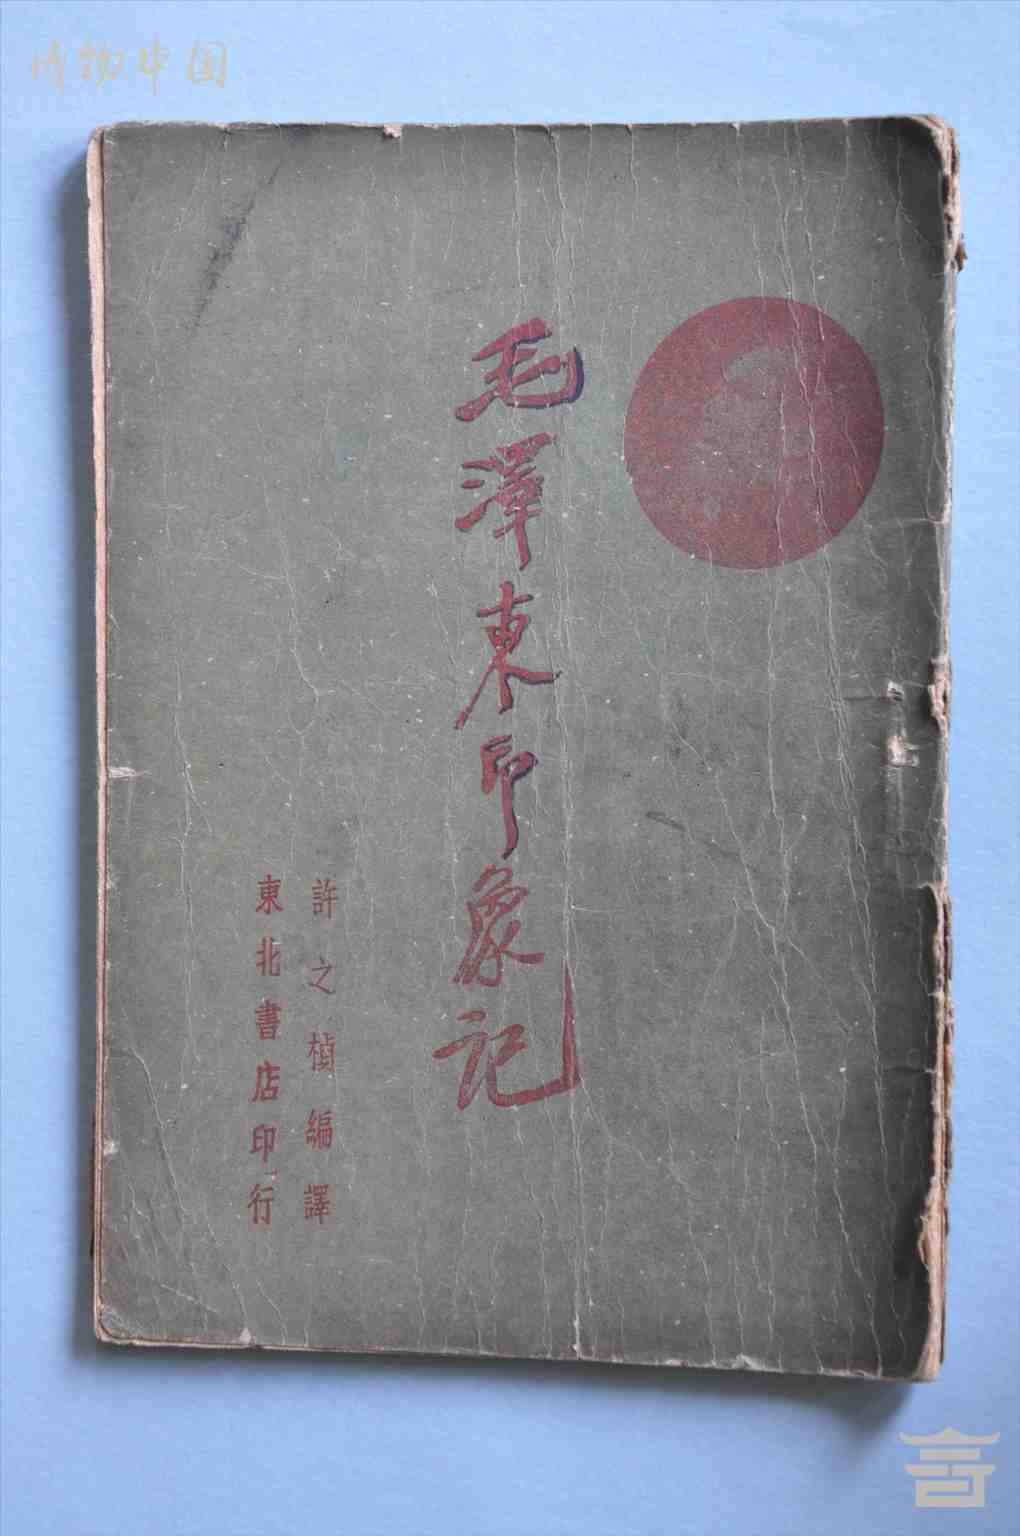 博物中国
毛澤東印象記
許之楨編譯
東北書店印行